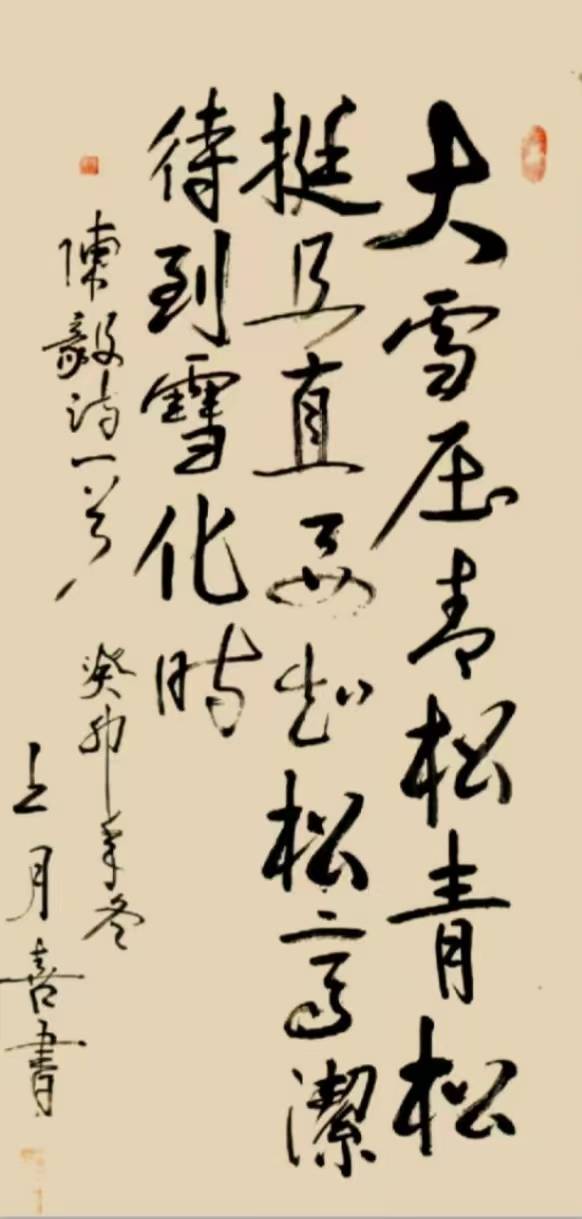 大雪压青松青松
挺且直要知松高潔
待到雪化時
陳毅诗一首 癸卯年冬
月喜書